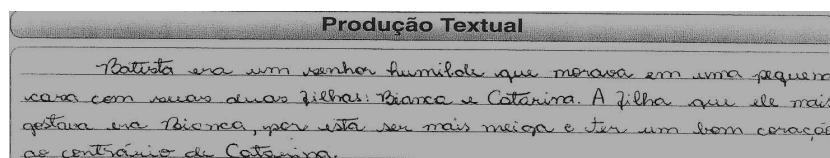 Produção Textual
Batista era um senhor humilde que morava em uma pequena
casa com suas duas filhas: Bianca e Catarina. A filha que ele mais
gostava era Bianca, por esta ser mais meiga e ter um bom coração
ao contrário de Catarina.